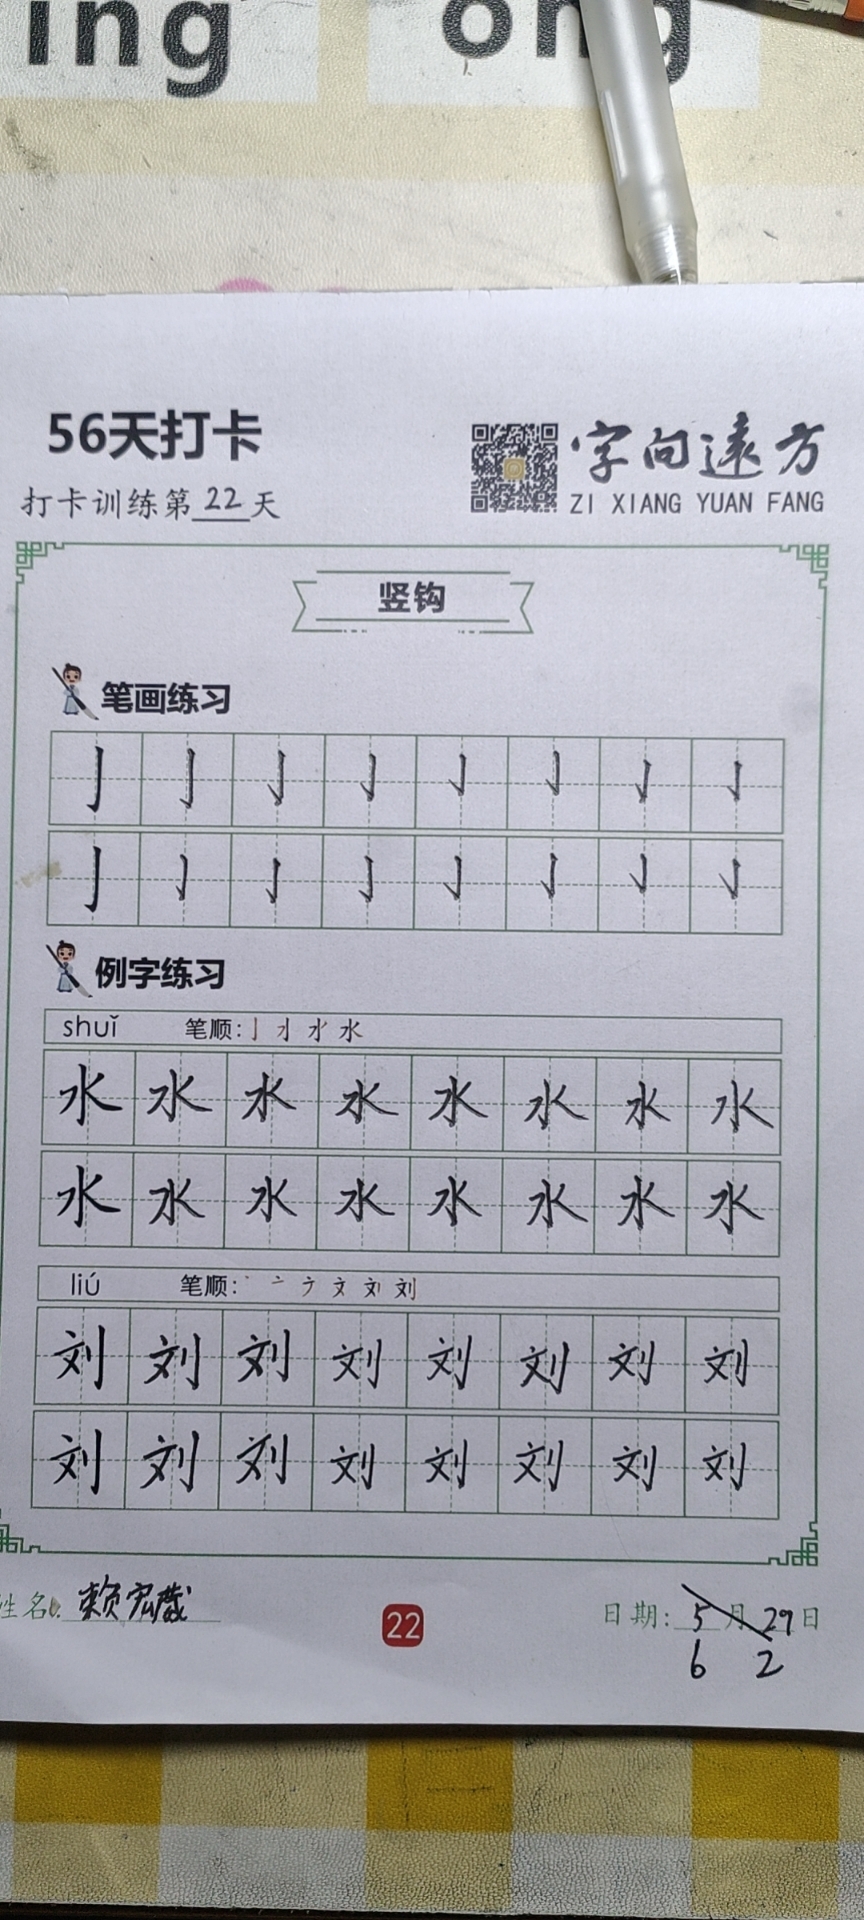 ing ong
56天打卡
打卡训练第22天
字向远方
ZI XIANG YUAN FANG
竖钩
笔画练习
亅亅亅亅亅亅亅亅
亅亅亅亅亅亅亅亅
例字练习
shuǐ 笔顺:
水水水水水水水水
水水水水水水水水
liú 笔顺:
刘刘刘刘刘刘刘刘
刘刘刘刘刘刘刘刘
姓名: 赖宏
22
日期: 5月29日
6 2